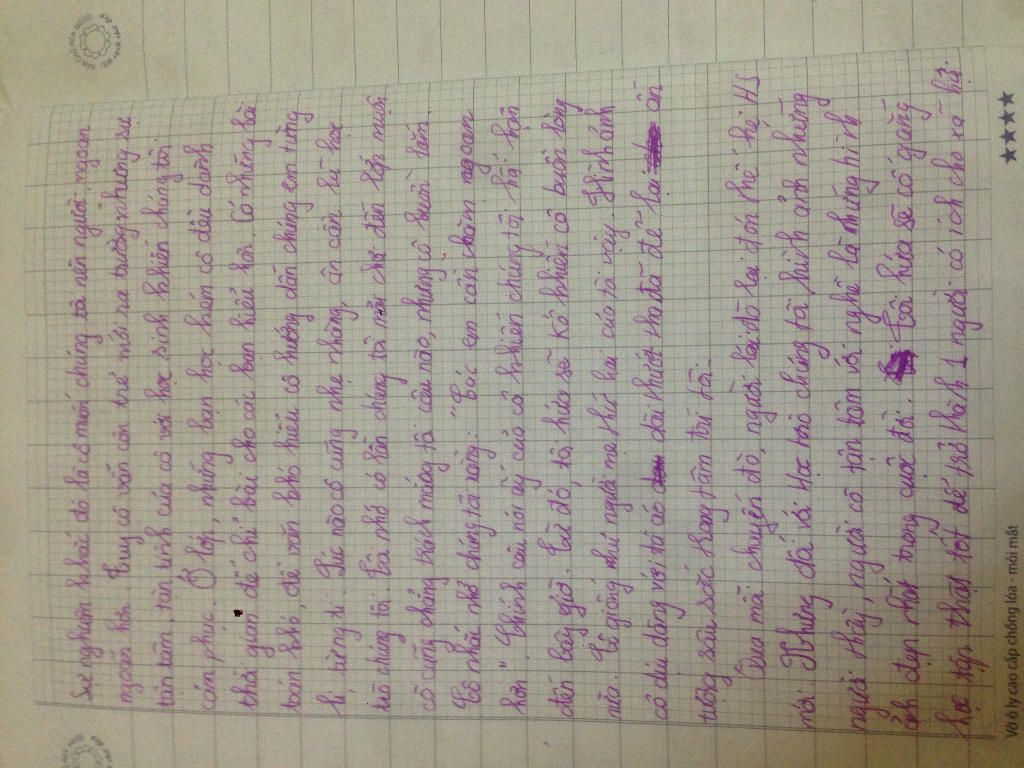 Sự nghiêm khắc đó là cô muốn chúng tôi nên người, ngoan
ngoãn hơn. Tuy cô vẫn còn trẻ mới ra trường nhưng sự
tận tâm, tận tình của cô với học sinh khiến chúng tôi
cảm phục. Ở lớp, những bạn học kém cô đều dành
thời gian để chỉ bài cho các bạn hiểu hơn. Có những bài
toán khó, đề văn khó hiểu cô hướng dẫn chúng em từng
li từng tí. Lúc nào cô cũng nhẹ nhàng, ân cần
cho chúng tôi. Tôi nhớ có lần chúng tôi mải chơi đến lớp muộn
cô cũng chẳng trách mắng tôi câu nào, nhưng cô buồn lắm
Cô nhắc nhở chúng tôi rằng: "Các em cần chăm ngoan
hơn". Chính câu nói ấy của cô khiến chúng tôi hối hận
đến bây giờ. Từ đó, tôi hứa sẽ kô khiến cô buồn lòng
nữa. Cô giống như người mẹ thứ hai của tôi vậy. Hình ảnh
cô dịu dàng với tà áo dài thướt tha đã để lại ấn
tượng sâu sắc trong tâm trí tôi.
Qua mỗi chuyến đò, người lái đò lại đón thế hệ HS
mới. Nhưng đối với Học trò chúng tôi hình ảnh những
người thầy, người cô tận tâm với nghề là những hình
ảnh đẹp nhất trong cuộc đời. Tôi hứa sẽ cố gắng
học tập thật tốt để trở thành 1 người có ích cho xã hội.
Vở ô ly cao cấp chống lóa - mỏi mắt